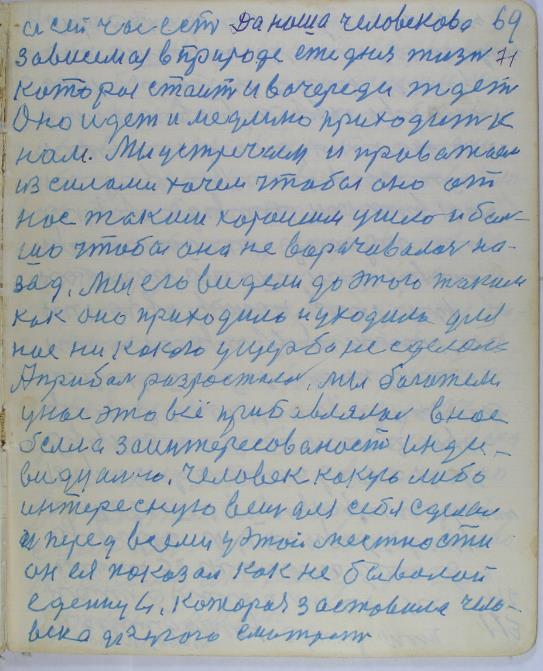 и сейчас есть Да наша человекова 69
зависемая в природе ежедняя жизн 71
которая стаит и в очереди ждет
Оно идет и медлино приходит к
нам. Мы устречаем и праважаем
из силами хочем чтобы оно от
нас таким хорошим ушло и бал-
шо чтобы она не варачивалас на-
зад, мы его видели до этого таким
как оно приходило и уходила для
нас ни какого ущерба не сделала
А прибал разростала, мы багатели
у нас это всё прибавлялас в нас
была заинтересованост инди-
видуално. Человек какую либо
интересную вещ для себя сделал
и перед всеми у этой местности
он ея показал как не бывалой
еденицы, которая заставила чело-
века другого смотрет